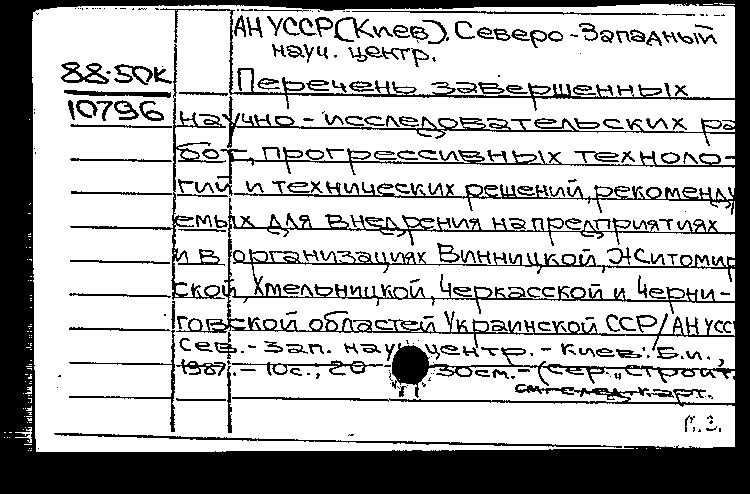 АН УССР (Киев). Северо-Западный
науч. центр.
88-50к
10796
Перечень завершенных
научно-исследовательских ра
бот, прогрессивных техноло-
гий и технических решений, рекоменду
емых для внедрения на предприятиях
и в организациях Винницкой, Житомир
ской, Хмельницкой, Черкасской и Черни-
говской областей Украинской ССР/АН УССР
Сев.-Зап. науч. центр.-Киев: Б.и.,
1987.-10с.; 20 30см.-(Сер. „Строит.
см. след. карт.